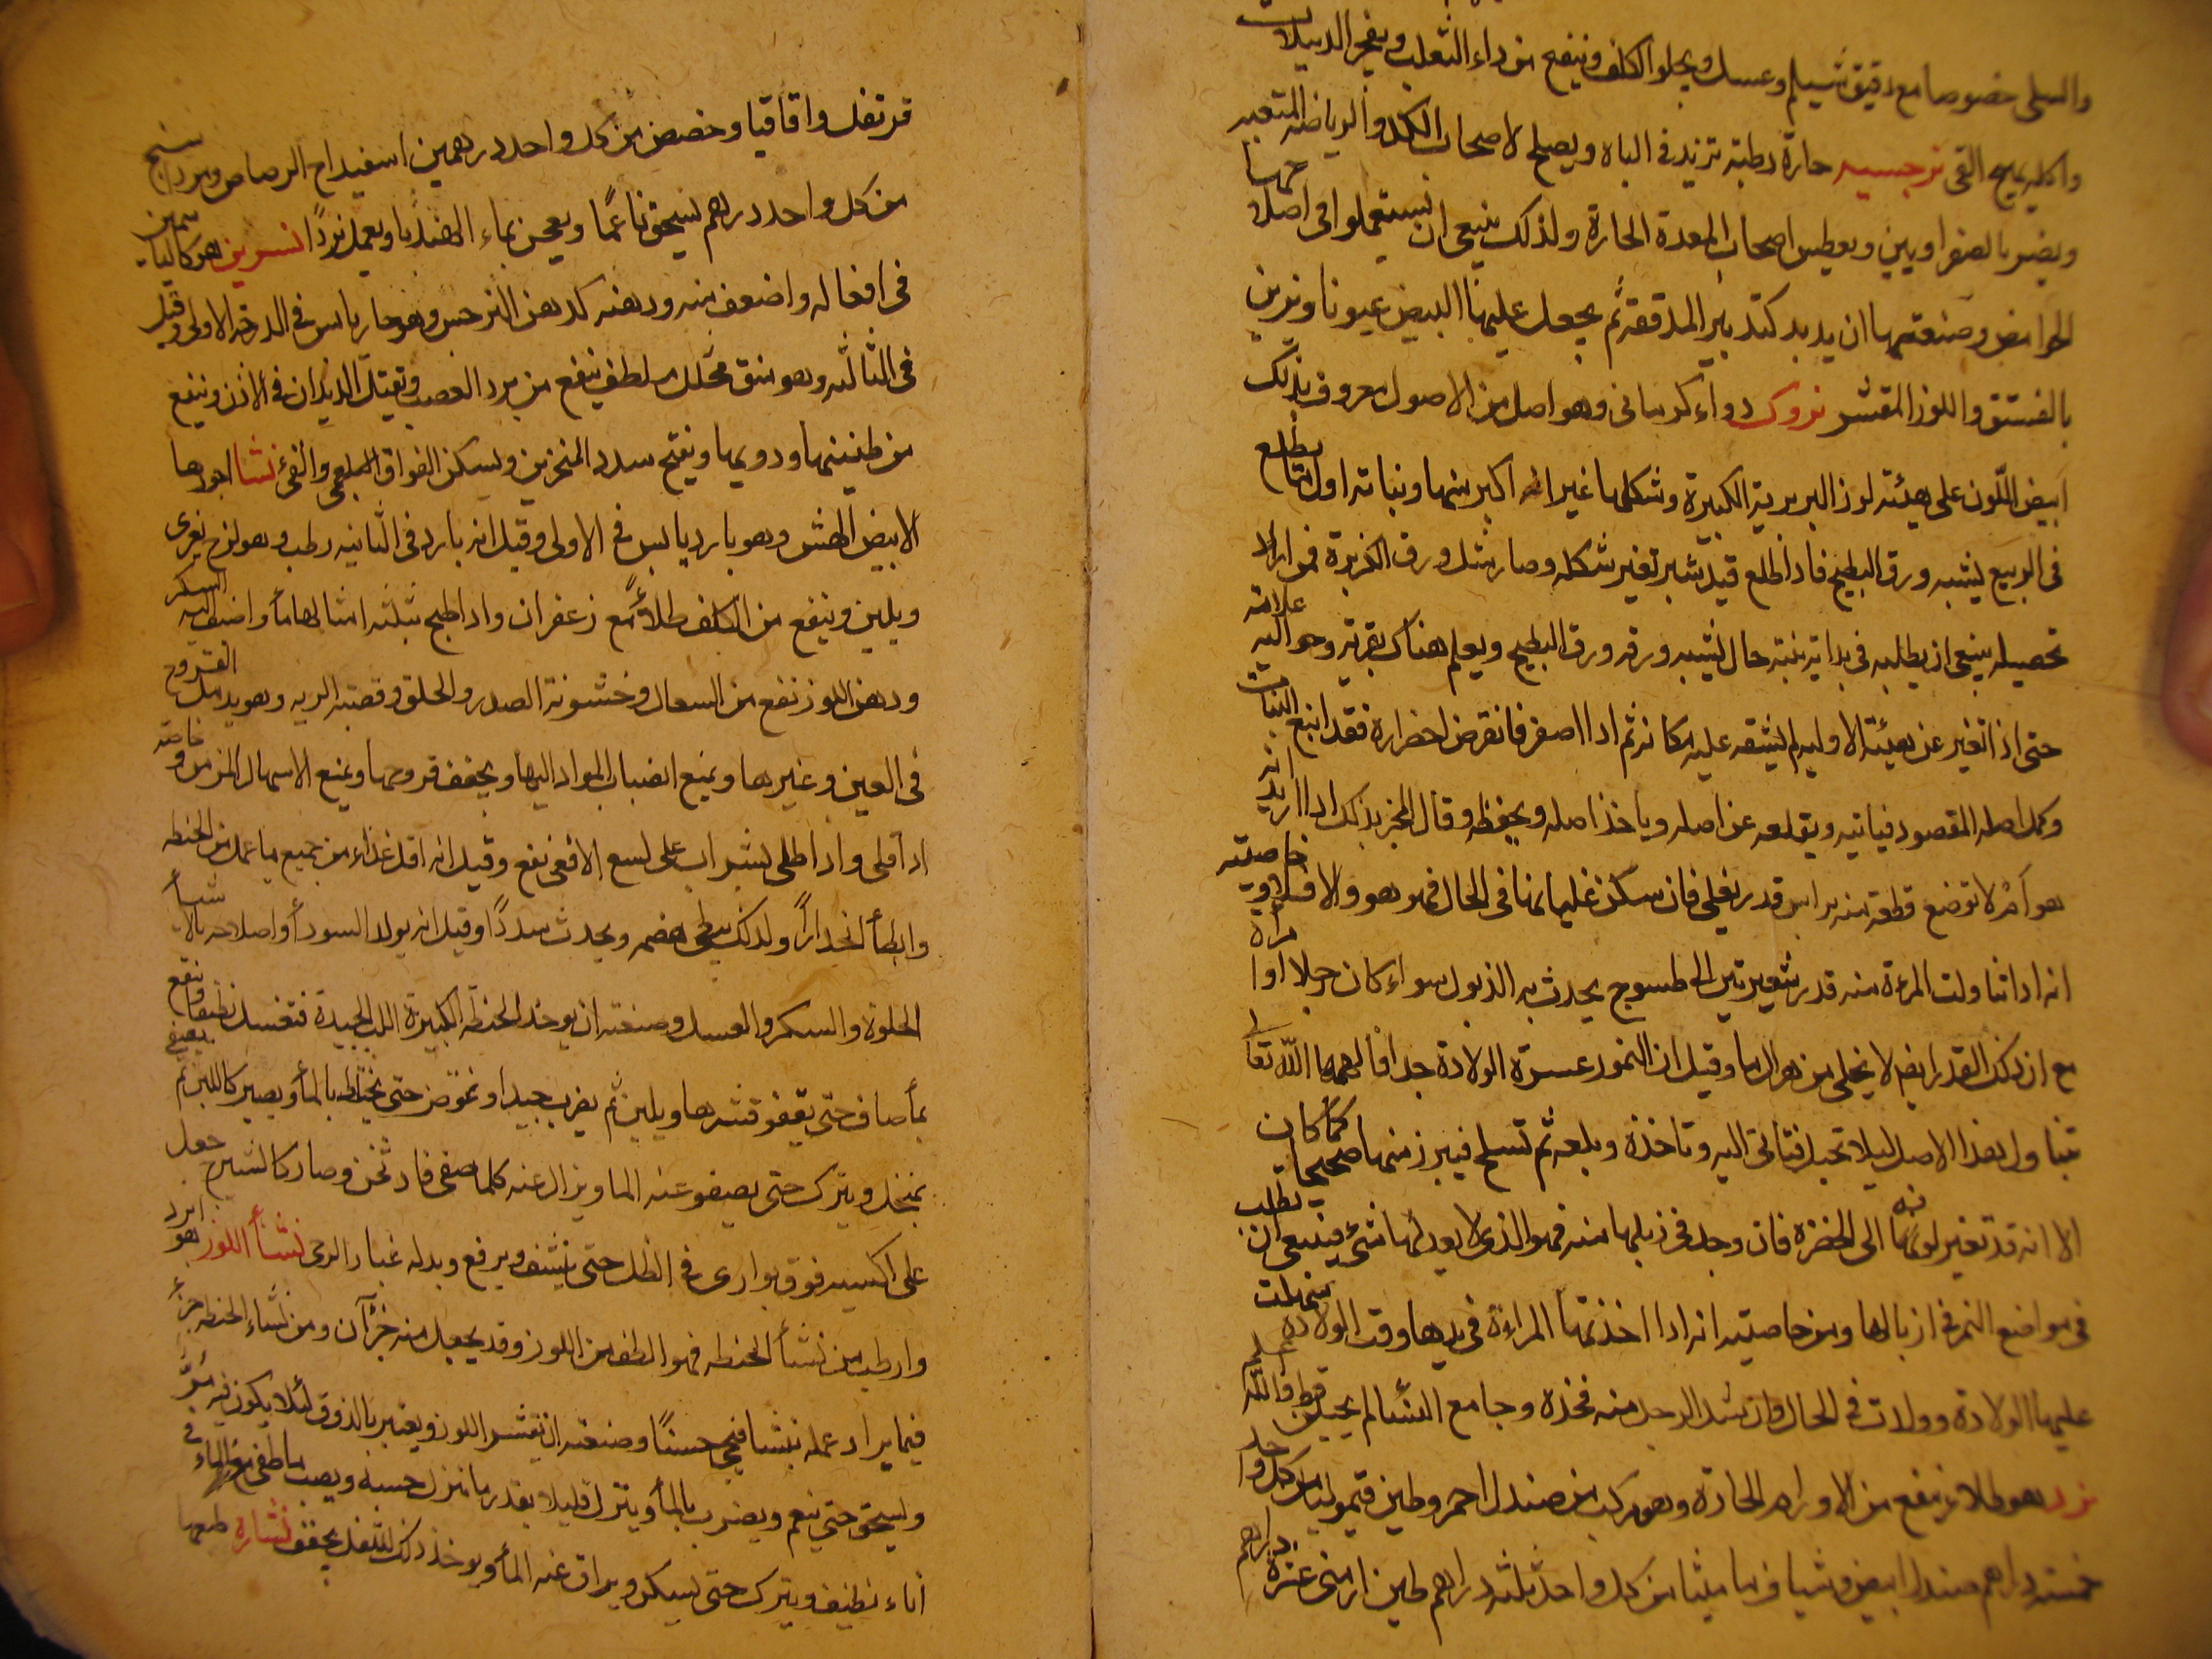 والسلى خصوصا مع دقيق شيلم وعسل ويجلو الكلف وينفع من داء الثعلب ويفجر الدبيلات
واكله يهيج القى نرجسيه حارة رطبة تزيد فى الباه ويصلح لاصحاب الكد والرياضة المتعبه
ويضر بالصفراويين ويعطس اصحاب المعدة الحارة ولذلك ينبغى ان يستعملوا فى اصلاحها
الحوامض وصنعتها ان يدبد كتدبير المدققة ثم يجعل عليها البيض عيونا ويزين
بالفستق واللوز المقشر نزوك دواء كرمانى وهو اصل من الاصول معروف بذلك
ابيض اللون على هيئته لوز البربرية الكبيرة وشكلها غير انه اكبر منها ونباته اول ما يطلع
فى الربيع يشبه ورق البطيخ فاذا طلع قيد شبر تغير شكله وصار مثل ورق الكزبرة فمن اراد
تحصيله ينبغى ان يطلبه فى بداية نبته حال يشبه ورقه ورق البطيخ ويعلم هناك بقربه وحواليه علامه
حتى اذا تغير عن هيئته الاوليه لم يشتبه عليه مكانه ثم اذا اصفر فانقرض اخضراره فقد اينع النبات
وكمل اصله المقصود فياتيه ويقلعه عن اصله وياخذ اصله ويحفظه وقال المخبر بذلك اذا اريد انه
هو أم لا توضع قطعة منه براس قدر يغلى فان سكن غليانها فى الحال فهو هو والا فلا ومن خاصيته
انه اذا تناولت المرءة منه قدر شعيرتين الى طسوج يحدث به الذبول سواء كان رجلا او امراة
مع ان ذلك القدر ايضا لا يخلى من هوالها وقيل ان النمور عسرة الولادة جدا فالهمها الله تعالى
تناول هذا الاصل ليلا تحبل فتاتى اليه وتاخذه وبلعه ثم تسلح فيبرز منها صحيحا كما كان
الا انه قد تغير لونه الى الخضرة فان وجد فى زبلها منه فهو الذى لا يعدلها شئ فينبغى ان يطلب
فى مواضع النمر فى ازبالها ومن خاصيته انه اذا اخذتها المراءة فى يدها وقت الولادة سهلت
عليها الولادة وولدت فى الحال وان شد الرجل منه فخذه وجامع النسا لم يحبلن قط والله اعلم
نرد هو طلاء ينفع من الاورام الحارة وهو مركب من صندل احمر وطين قيموليا من كل واحد
خمسة دراهم صندل ابيض وشياف ماميثا من كل واحد ثلثة دراهم طين ارمنى عشرة دراهم
قرنفل واقاقيا وخضض من كل واحد درهمين اسفيداج الرصاص ومرداسنج
من كل واحد درهم يسحق ناعمًا ويعجن بماء الهندبا ويعمل نردًا نسرين هو كالياسمين
فى افعاله واضعف منه ودهنه كدهن النرجس وهو حار يابس فى الدرجة الاولى وقيل
فى الثالثه وهو منق محلل ملطف ينفع من برد العصب ويقتل الديدان فى الاذن وينفع
من طنينها ودويها ويفتح سدد المنخرين ويسكن الفواق البلغمى والقئ نشا اجودها
الابيض الهش وهو بارد يابس فى الاولى وقيل انه بارد فى الثانيه رطب وهو لزج يغرى
ويلين وينفع من الكلف طلاءً مع زعفران واذا طبخ بثلثه امثالها مأ واضيف اليه السكر
ودهن اللوز نفع من السعال وخشونة الصدر والحلق وقصبة الريه وهو يدمل القروح
فى العين وغيرها ويمنع انصباب المواد اليها ويجفف قروحها ويمنع الاسهال المزمن وخاصه
اذا قلى واذا طلى بشراب على لسع الافعى نفع وقيل انه اقل غذاء من جميع ما عمل من الحنطه
وابطأ انحدارًا ولذلك بطى هضمه ويحدث سددًا وقيل انه يولد السودأ واصلاحه بالاشيأ
الحلوة والسكر والعسل وصنعته ان يوخذ الحنطه الكبيرة اللب الجيدة فتغسل نظيفا وتنقع
بمأ صاف حتى يقفو قشرها ويلين ثم يضرب جيدا وتموَّض حتى يختلط بالمأ ويصير كاللبن ثم يصفى
بمنخل ويترك حتى يصفو عنه الما ويزال عنه كلما صفى فاذ ثخن وصار كالشيرج جعل
على اكسيه فوق بوارى فى الظل حتى ينشف ويرفع وبدله غبار الرحى نشأ اللوز هو ابرد
وارطب من نشأ الحنطه فهو الطف من اللوز وقد يجعل منه جزآن ومن نشاء الحنطه جزء
فيما يراد عمله بنشا فيجى حسنًا وصنعته ان يقشر اللوز ويعتبر بالذوق لئلا يكون فيه مر
ويسحق حتى ينعم ويضرب بالمأ وينزل قليلا بقدر ما نزل حسبه ويصب ما طفى مع الماء فى
اناء نظيف ويترك حتى يسكن ويراق عنه المأ ويوخذ ذلك الثفل يجفف نشاره طعمها